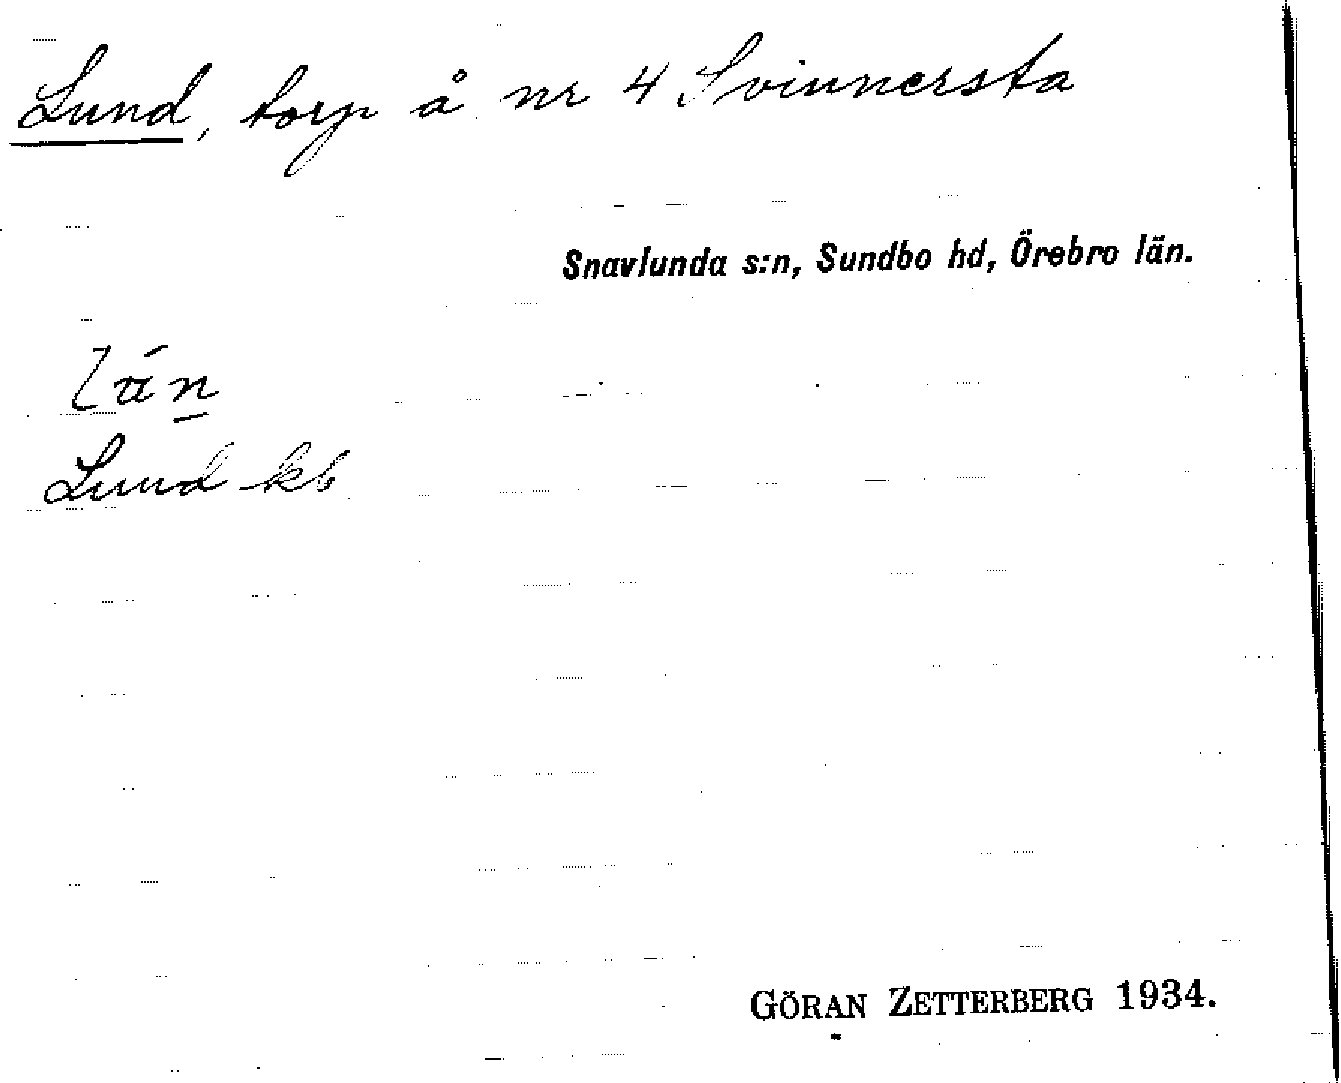 Lund, torp å nr 4 Svinnersta
Snavlunda s:n, Sundbo hd, Örebro län.
Lund kb
GÖRAN ZETTERBERG 1934.